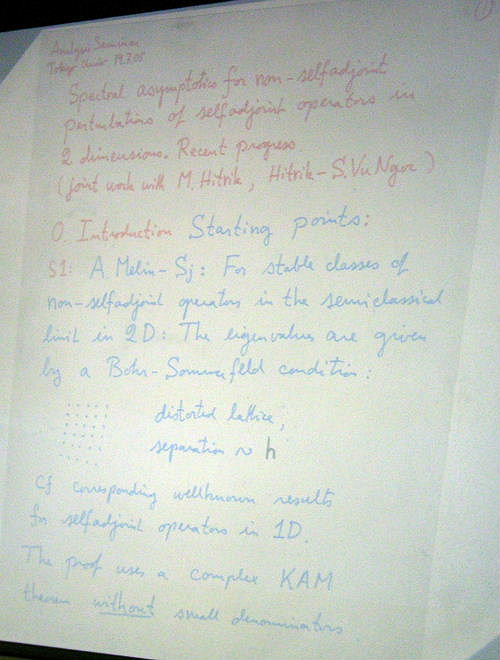 Analysis Seminar
Tokyo Univ 19.7.05
1
Spectral asymptotics for non-selfadjoint
perturbations of selfadjoint operators in
2 dimensions. Recent progress
(joint work with M. Hitrik, Hitrik-S. Vu Ngoc)
0. Introduction Starting points:
S1: A. Melin-Sj: For stable classes of
non-selfadjoint operators in the semiclassical
limit in 2D: The eigenvalues are given
by a Bohr-Sommerfeld condition:
distorted lattice,
separation ~ h
Cf corresponding wellknown results
for selfadjoint operators in 1D.
The proof uses a complex KAM
theorem without small denominators.